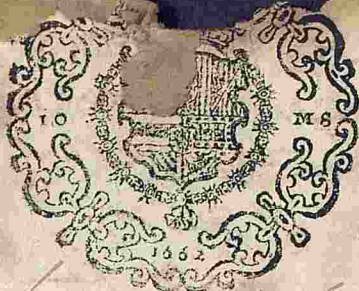 IO MS
1662